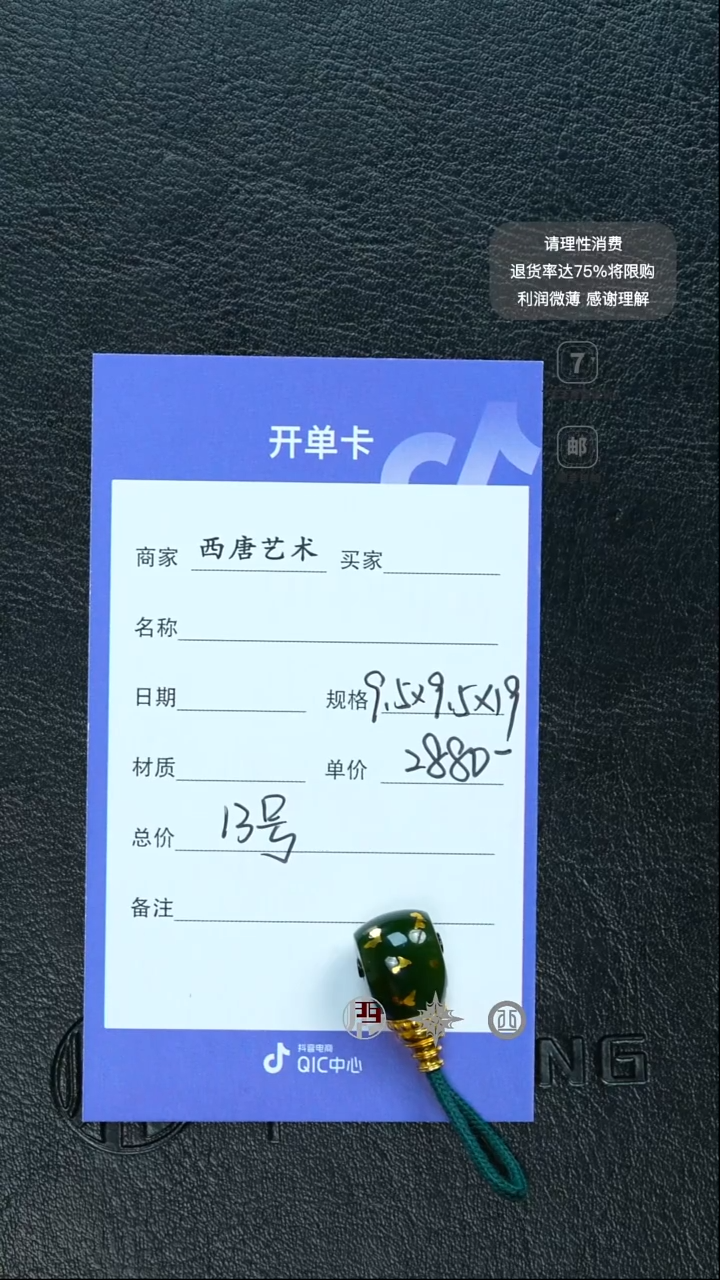 请理性消费
退货率达75%将限购
利润微薄 感谢理解
7
邮
开单卡
商家 西唐艺术 买家
名称
日期 规格 9.5x9.5x19
材质 单价 2880-
总价 13号
备注
抖音电商
QIC中心
西
NG